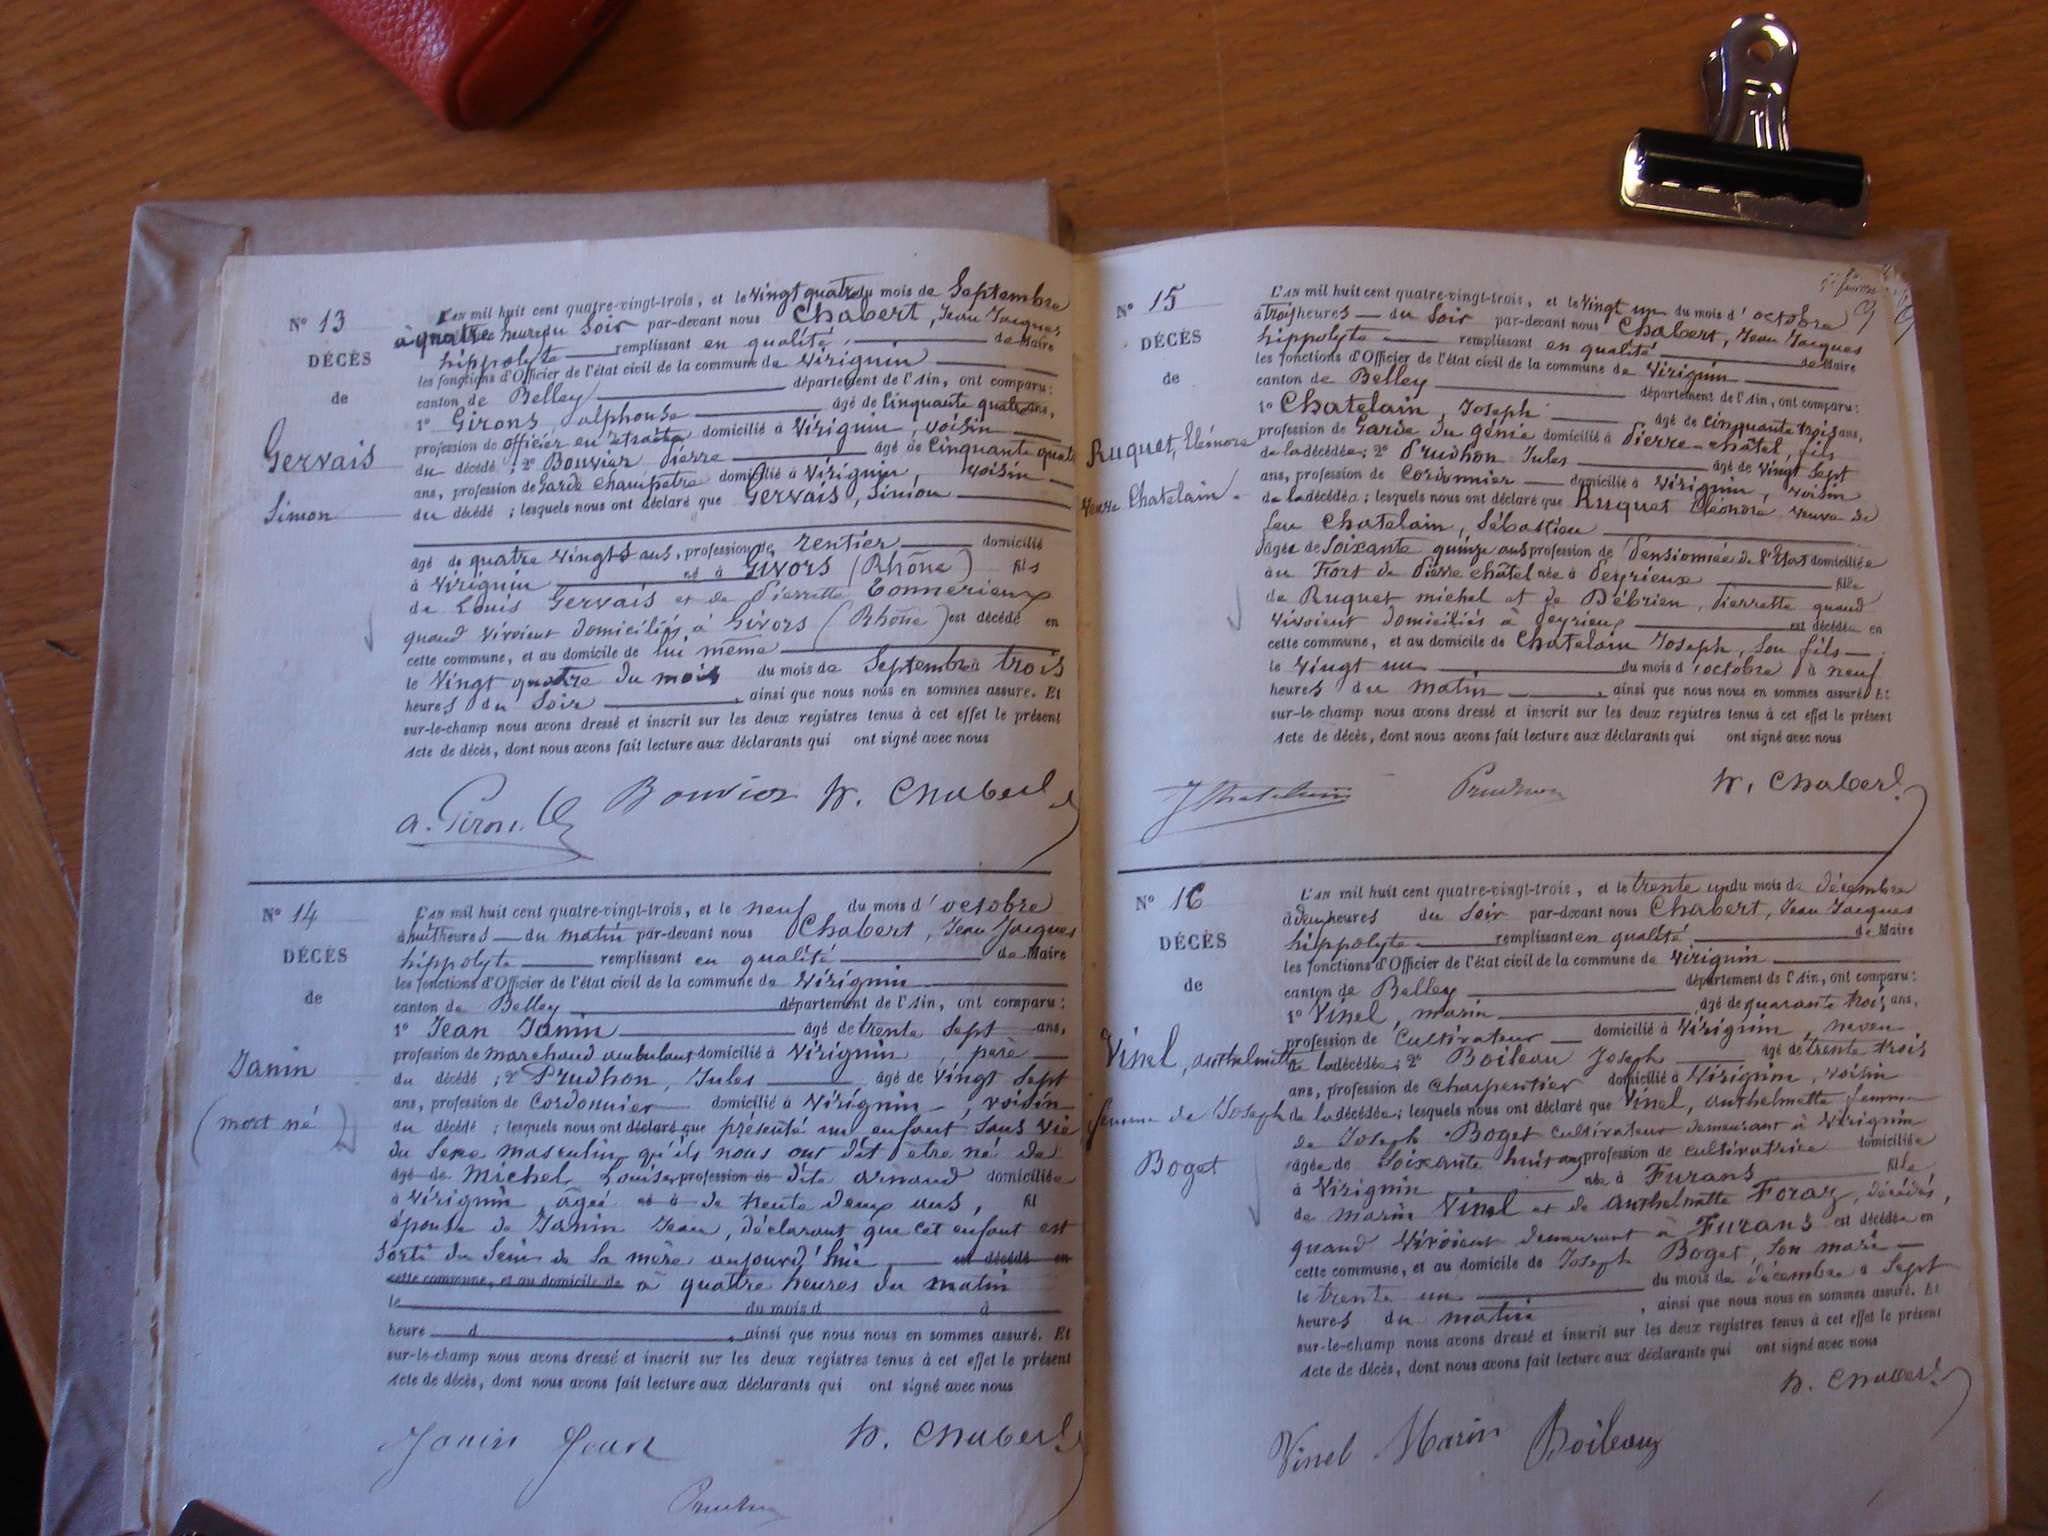 N° 13
DÉCÈS
de
Gervais
Simon
L'AN mil huit cent quatre-vingt-trois, et le vingt quatre du mois de Septembre
à quatre heures du Soir par-devant nous Chabert, Jean Jacques
hippolyte remplissant en qualité de Maire
les fonctions d'Officier de l'état civil de la commune de Virignin
canton de Belley département de l'Ain, ont comparu:
1° Girons, alphonse âgé de Cinquante quatre ans,
profession de officier en retraite domicilié à Virignin, voisin
du décédé; 2° Bouvier Pierre âgé de Cinquante quatre
ans, profession de Garde Champêtre domicilié à Virignin, voisin
du décédé; lesquels nous ont déclaré que Gervais, Simon
âgé de quatre vingts ans, profession de rentier domicilié
à Virignin né à Givors (Rhône) fils
de Louis Gervais et de Pierrette Tonnerieux
quand vivoient domiciliés à Givors (Rhône) est décédé en
cette commune, et au domicile de lui même
le Vingt quatre du mois du mois de Septembre à trois
heures du Soir, ainsi que nous nous en sommes assuré. Et
sur-le-champ nous avons dressé et inscrit sur les deux registres tenus à cet effet le présent
acte de décès, dont nous avons fait lecture aux déclarants qui ont signé avec nous
a. Girons Bouvier h. Chabert
N° 14
DÉCÈS
de
Janin
(mort né)
L'AN mil huit cent quatre-vingt-trois, et le neuf du mois d'octobre
à huit heures du matin par-devant nous Chabert, Jean Jacques
hippolyte remplissant en qualité de Maire
les fonctions d'Officier de l'état civil de la commune de Virignin
canton de Belley département de l'Ain, ont comparu:
1° Jean Janin âgé de trente sept ans,
profession de marchand ambulant domicilié à Virignin, père
du décédé; 2° Prudhon, Jules âgé de vingt sept
ans, profession de Cordonnier domicilié à Virignin, voisin
du décédé; lesquels nous ont déclaré que présenté un enfant sans vie
du Sexe masculin qu'ils nous ont dit être né de
âgé de Michel Louise profession de dite arnaud domiciliée
à Virignin âgée né à de trente deux ans, fil
épouse de Janin Jean, déclarant que cet enfant est
sorti du Sein de sa mère aujourd'hui est décédé en
cette commune, et au domicile de à quatre heures du matin
le du mois d à
heure d, ainsi que nous nous en sommes assuré. Et
sur-le-champ nous avons dressé et inscrit sur les deux registres tenus à cet effet le présent
acte de décès, dont nous avons fait lecture aux déclarants qui ont signé avec nous
Janin Jean h. Chabert
Prudhon
N° 15
DÉCÈS
de
Ruquet, Eléonore
Veuve Chatelain.
L'AN mil huit cent quatre-vingt-trois, et le vingt un du mois d'octobre
à trois heures du Soir par-devant nous Chabert, Jean Jacques
hippolyte remplissant en qualité de Maire
les fonctions d'Officier de l'état civil de la commune de Virignin
canton de Belley département de l'Ain, ont comparu:
1° Chatelain, Joseph âgé de cinquante trois ans,
profession de Garde du génie domicilié à Pierre-châtel, fils
de la décédée; 2° Prudhon Jules âgé de vingt sept
ans, profession de Cordonnier domicilié à Virignin, voisin
de la décédée; lesquels nous ont déclaré que Ruquet Eléonore, veuve de
feu Chatelain, Sébastien
âgée de Soixante quinze ans profession de Pensionnée de l'Etat domiciliée
au Fort de Pierre châtel née à Peyrieux fille
de Ruquet michel et de Débrien, Pierrette quand
vivoient domiciliés à Peyrieux est décédée en
cette commune, et au domicile de Chatelain Joseph, son fils
le vingt un du mois d'octobre à neuf
heures du matin, ainsi que nous nous en sommes assuré. Et
sur-le-champ nous avons dressé et inscrit sur les deux registres tenus à cet effet le présent
acte de décès, dont nous avons fait lecture aux déclarants qui ont signé avec nous
J Chatelain Prudhon h. Chabert
N° 16
DÉCÈS
de
Vinel, anthelmette
femme de Joseph
Boget
L'AN mil huit cent quatre-vingt-trois, et le trente un du mois de décembre
à deux heures du Soir par-devant nous Chabert, Jean Jacques
hippolyte remplissant en qualité de Maire
les fonctions d'Officier de l'état civil de la commune de Virignin
canton de Belley département de l'Ain, ont comparu:
1° Vinel, marin âgé de quarante trois ans,
profession de Cultivateur domicilié à Virignin, neveu
de la décédée; 2° Boileau Joseph âgé de trente trois
ans, profession de Charpentier domicilié à Virignin, voisin
de la décédée; lesquels nous ont déclaré que Vinel, anthelmette femme
de Joseph Boget cultivateur demeurant à Virignin
âgée de Soixante huit ans profession de cultivatrice domiciliée
à Virignin née à Furans fille
de marin Vinel et de anthelmette Foraz, décédés,
quand vivoient demeurant à Furans est décédée en
cette commune, et au domicile de Joseph Boget, son mari
le trente un du mois de décembre à Sept
heures du matin, ainsi que nous nous en sommes assuré. Et
sur-le-champ nous avons dressé et inscrit sur les deux registres tenus à cet effet le présent
acte de décès, dont nous avons fait lecture aux déclarants qui ont signé avec nous
h. Chabert
Vinel Marin Boileau